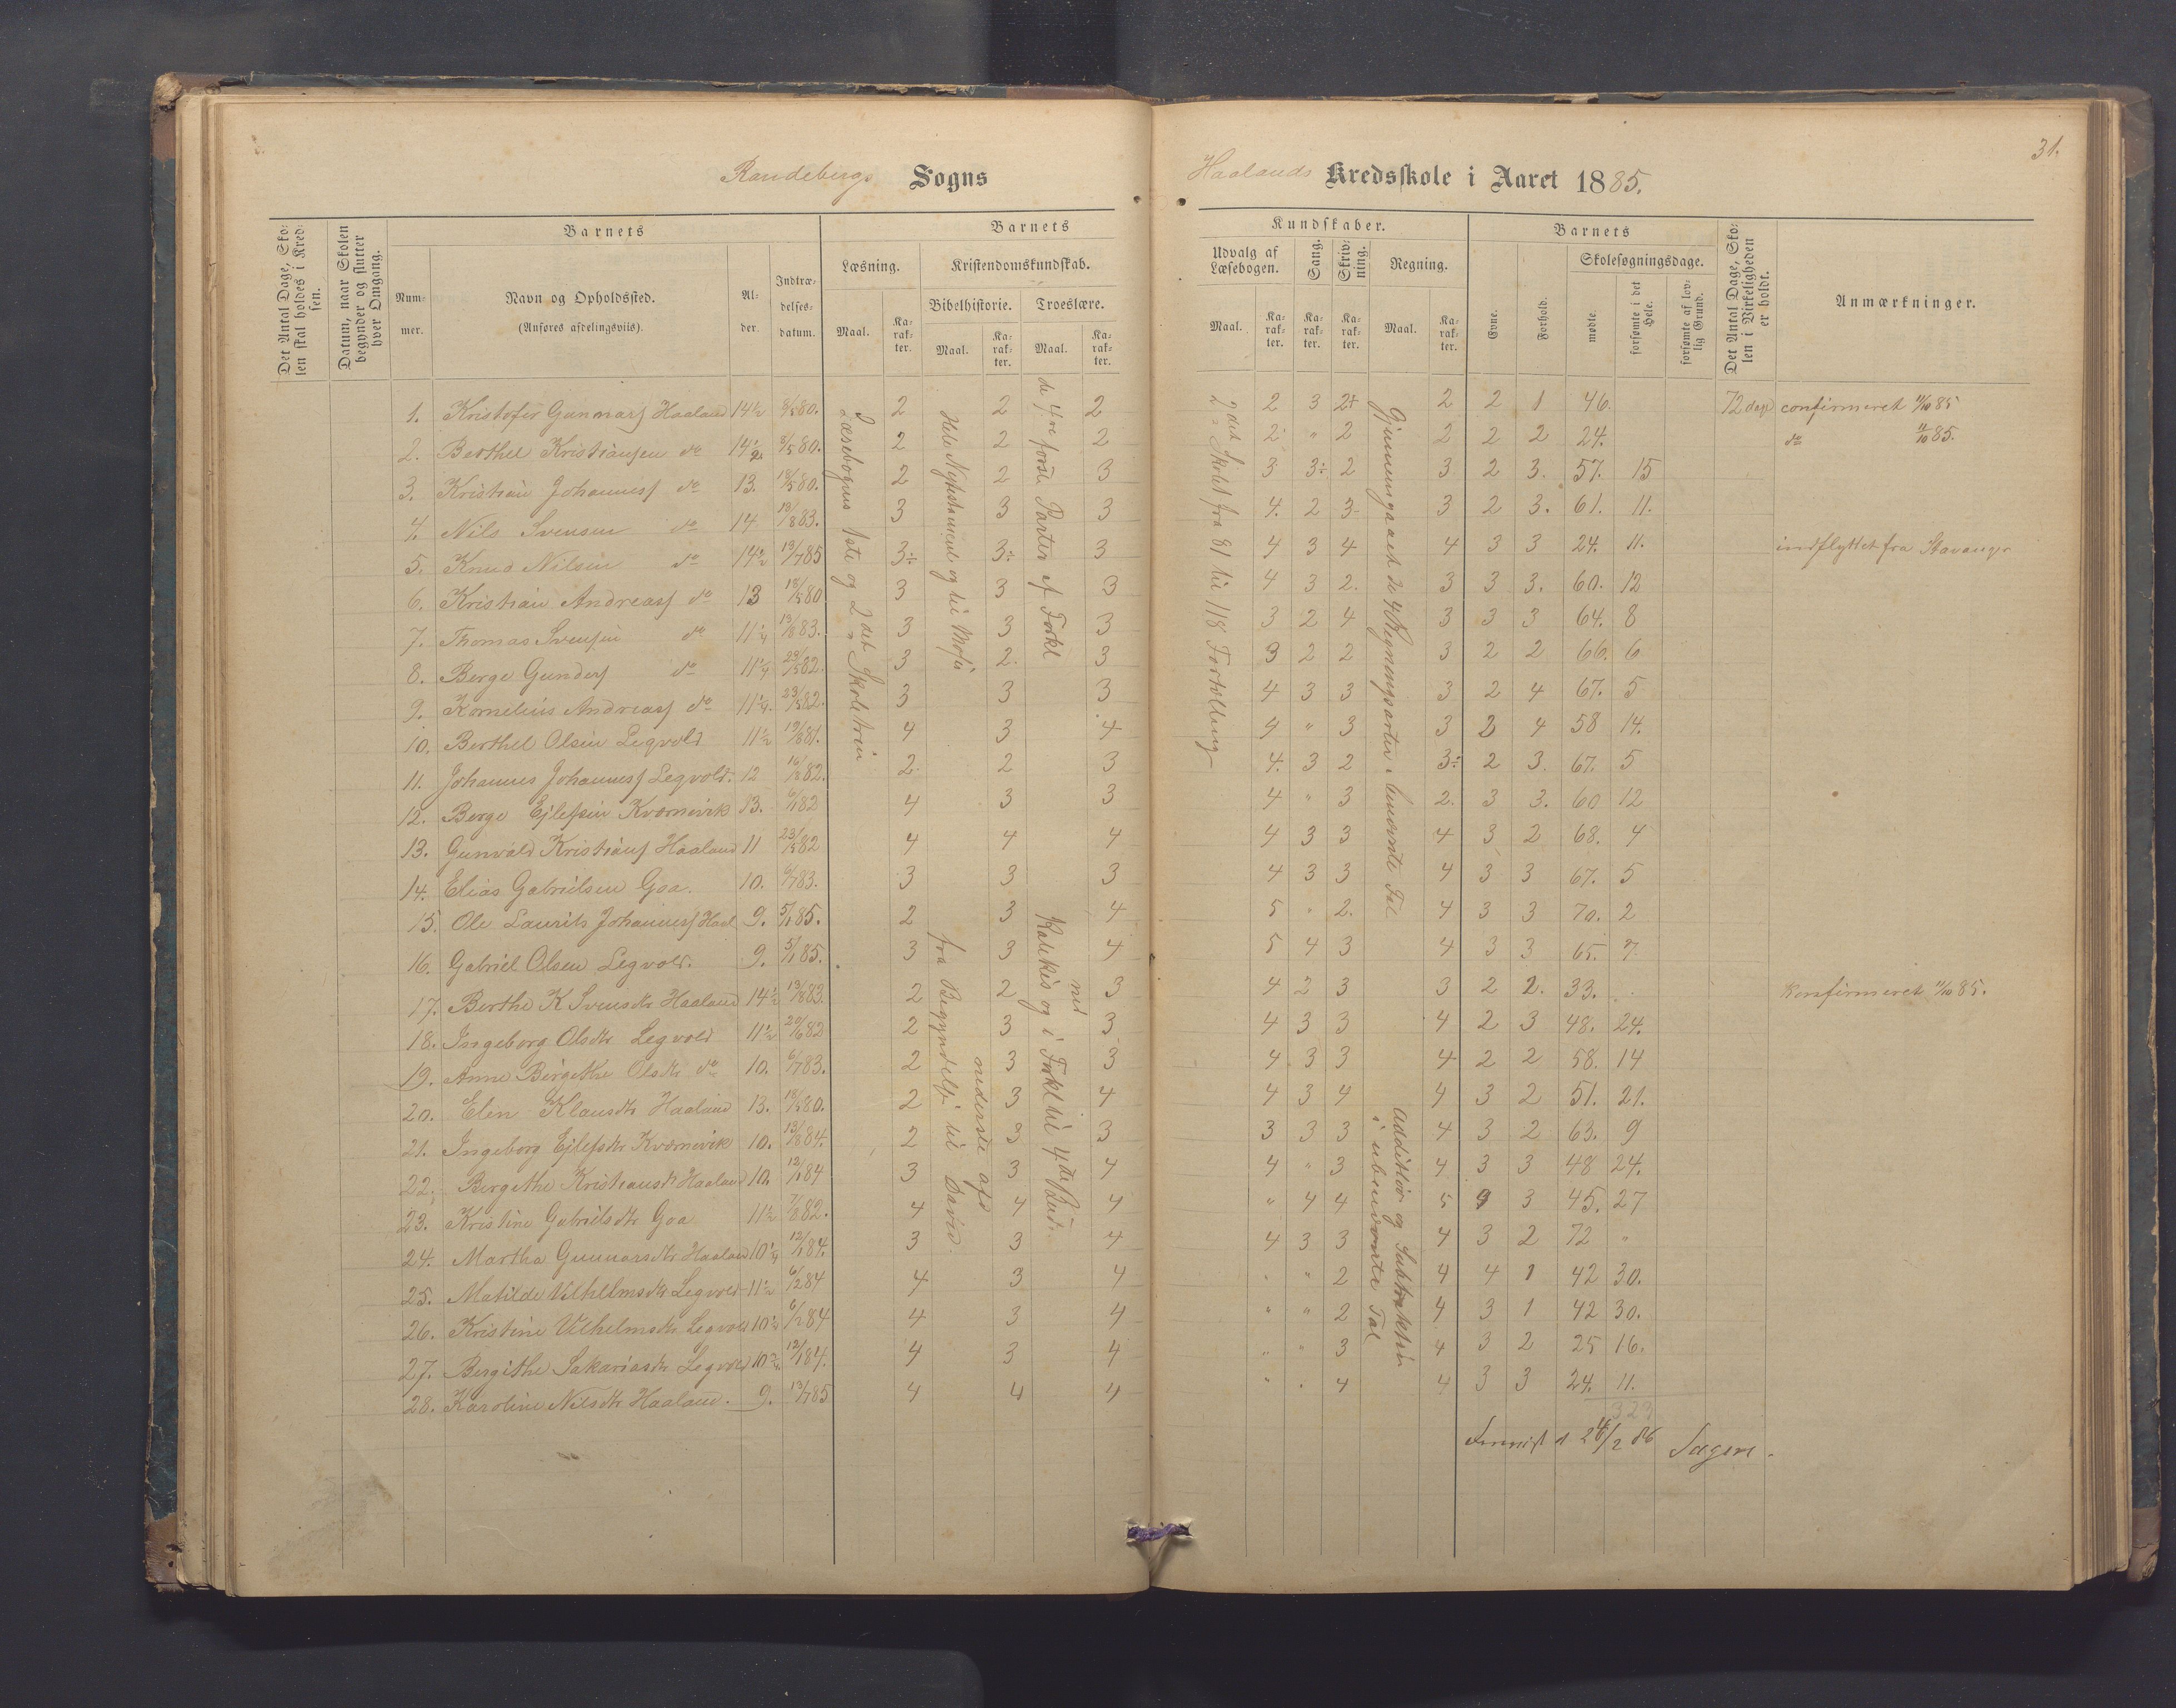 31.
Randebergs Sogns
Haalands Kredsskole i Aaret 1885.
Det Antal Dage, Skolen skal holdes i Kredsen.
Datum, naar Skolen begynder og slutter hver Omgang.
Barnets
Nummer.
Navn og Opholdssted.
(Anføres afdelingsviis).
Alder.
Indtrædelsesdatum.
Barnets
Læsning.
Maal.
Karakter.
Kristendomskundskab.
Bibelhistorie.
Maal.
Karakter.
Troeslære.
Maal.
Karakter.
Kundskaber.
Udvalg af Læsebogen.
Maal.
Karakter.
Sang.
Karakter.
Skrivning.
Karakter.
Regning.
Maal.
Karakter.
Barnets
Evne.
Forhold.
Skolesøgningsdage.
mødte.
forsømte i det Hele.
forsømte af lovlig Grund.
Det Antal Dage, Skolen i Virkeligheden er holdt.
Anmærkninger.
1. Kristofer Gunnars Haaland 14½ 8/5 80. 2 2 2 2 3 2+ 2 2 1 46. 72 dage confirmeret 11/10 85
2. Berthel Kristiansen do 14½ 8/5 80. 2 2 2 2 " 2 2 2 2 24. do 11/10 85.
3. Kristian Johannes do 13. 18/5 80. 2 2 3 3 3÷ 2 3 2 3. 57. 15
4. Nils Svensen do 14 13/8 83. 3 3 3 4. 2 3- 3 2 3. 61. 11.
5. Knud Nilsen do 14½ 13/7 85 3÷ 3÷ 3 4 3 4 4 3 3 24. 11. indflyttet fra Stavanger
6. Kristian Andreas do 13 18/5 80 3 3 3 4 3 2. 3 3 3. 60. 12
7. Thomas Svensen do 11¼ 13/8 83. 3 3 3 3 2 4 3 3 3 64. 8
8. Berge Gunders do 11¼ 23/5 82. 3 2. 3 3 2 2 3 2 2 66. 6
9. Kornelius Andreas do 11¼. 23/5 82. 3 3 3 4 3 3 3 2 4 67. 5
10. Berthel Olsen Legvold 11½ 13/8 81. 4 3 4 4 " 3 3 2 4 58 14.
11. Johannes Johannes Legvold. 12 16/8 82. 2. 2 3 4. 3 2 3÷ 2 3. 67. 5
12. Berge Ejlefsen Kværnevik 13. 6/1 82 4 3 3 4 " 3 2. 3 3. 60 12
13. Gunvald Kristians Haaland 11 23/5 82 4 4 4 4 3 3 4 3 2 68. 4
14. Elias Gabrielsen Goa. 10. 6/7 83. 3 3 3 4 3 3 4 3 3 67. 5
15. Ole Laurits Johannes Haal 9. 5/1 85. 2 3 4 5 " 2. 4 3 3 70. 2
16. Gabriel Olsen Legvold. 9. 5/1 85. 3 3 4 5 4 3 4 3 3 65. 7
17. Berthe K Svensdtr Haaland 14½ 13/8 83. 2 2 3 4 2 3 3 2 2. 33. Konfirmeret 11/10 85.
18. Ingeborg Olsdtr Legvold 11½ 20/6 82 2 3 3 4 3 3 4 2 3 48. 24.
19. Anne Bergithe Olsdtr do 10. 6/7 83. 2 3 3 4 3 3 4 2 2 58. 14
20. Elen Klausdtr Haaland 13. 18/5 80. 2 3 4 4 3 4 4 3 2 51. 21.
21. Ingeborg Ejlefsdtr Kværnevik 10. 13/8 84. 2 3 3 3 3 3 4 3 2 63. 9
22. Bergethe Kristiansdtr Haaland 10. 12/1 84 3 3 4 4 " 3 4 3 3 48 24.
23. Kristine Gabrielsdtr Goa 11½ 7/8 82. 4 4 4 " 4 4 5 3 45. 27
24. Martha Gunnarsdtr Haaland 10¼ 12/1 84. 3 3 4 4 3 3 4 3 2 72 "
25. Matilde Vilhelmsdtr Legvold 11½ 6/2 84 4 3 4 " " 2 4 4 1 42 30.
26. Kristine Vilhelmsdtr Legvold 10½ 6/2 84 4 3 4 " " 2 4 3 1 42 30.
27. Bergithe Sakariasdtr Legvold 10¾ 12/1 84. 4 3 4 " " 3 4 3 2 25 16.
28. Karoline Nilsdtr Haaland. 9. 13/7 85 4 4 4 " " 4 4 3 3 24. 11.
323
Læsebogens 1ste og 2det Skoletrin
Hele Nytestament og til Moses.
fra Begyndelse til David.
nederste afd
de 4re første Parter af Forkl
Katekis og i Forkl til 4de Bud.
med
2det Skolet fra 81 til 118 Fortælling
Gjennemgaaet de 4 Regningsarter i benævnte Tal
Addition og Subtraktion
i ubenævnte Tal
24/2 86